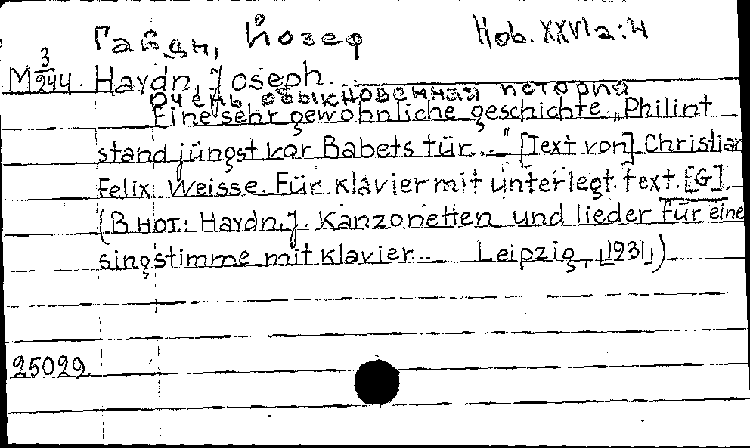 Гайдн, Йозеф Hob. XXVIa:4
M 3/244 Haydn, Joseph.
Очень обыкновенная история
Eine sehr gewöhnliche geschichte „Philint
stand jüngst vor Babets tür..." [Text von] Christian
Felix Weisse. Für klavier mit unterlegt. text. [G].
(В нот.: Haydn J. Kanzonetten und lieder für eine
singstimme mit klavier... Leipzig, [1931])
25029